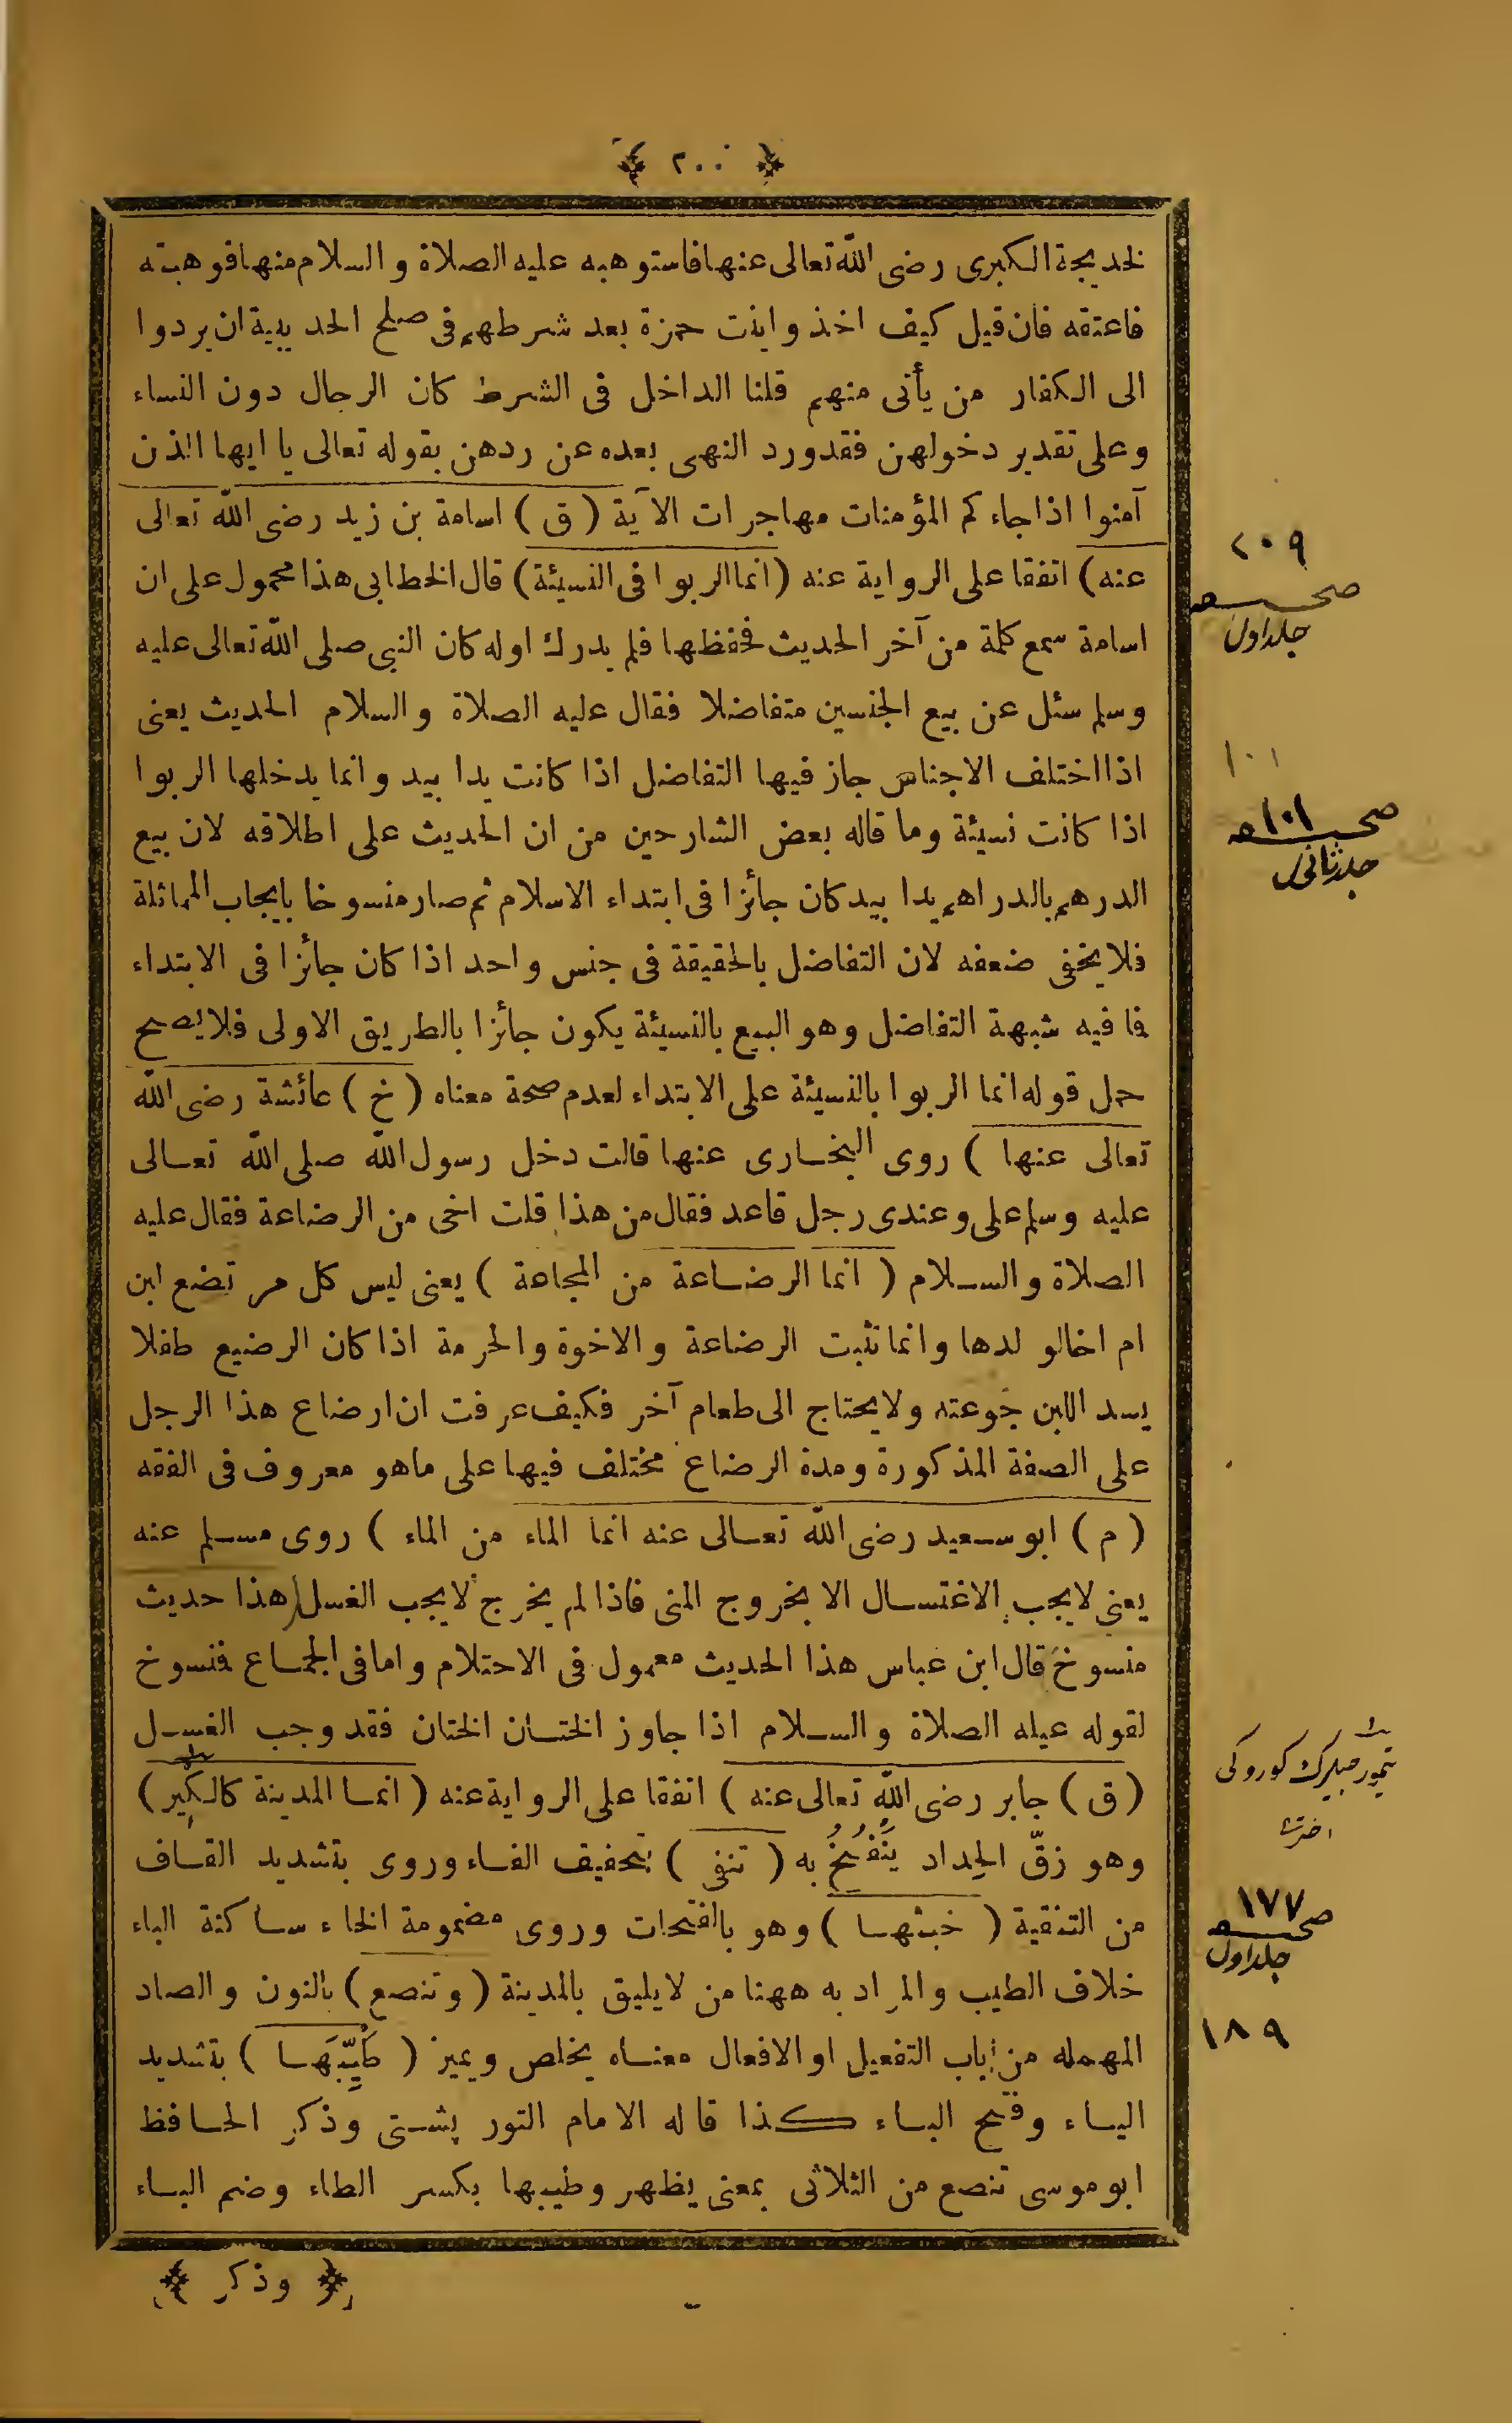 ﴿ ٢٠٠ ﴾
لخديجة الكبرى رضى الله تعالى عنها فاستوهبه عليه الصلاة والسلام منها فوهبته
فاعتقه فان قيل كيف اخذوا بنت حمزة بعد شرطهم فى صلح الحديبية ان يردوا
الى الكفار من يأتى منهم قلنا الداخل فى الشرط كان الرجال دون النساء
وعلى تقدير دخولهن فقد ورد النهى بعده عن ردهن بقوله تعالى يا ايها الذين
آمنوا اذا جاءكم المؤمنات مهاجرات الآية ( ق ) اسامة بن زيد رضى الله تعالى
عنه) اتفقا على الرواية عنه (انما الربوا فى النسيئة) قال الخطابى هذا محمول على ان
اسامة سمع كلمة من آخر الحديث فحفظها فلم يدرك اوله كان النبى صلى الله تعالى عليه
وسلم سئل عن بيع الجنسين متفاضلا فقال عليه الصلاة والسلام الحديث يعنى
اذا اختلف الاجناس جاز فيها التفاضل اذا كانت يدا بيد وانما يدخلها الربوا
اذا كانت نسيئة وما قاله بعض الشارحين من ان الحديث على اطلاقه لان بيع
الدرهم بالدراهم يدا بيد كان جائزا فى ابتداء الاسلام ثم صار منسوخا بايجاب المماثلة
فلا يخفى ضعفه لان التفاضل بالحقيقة فى جنس واحد اذا كان جائزا فى الابتداء
فما فيه شبهة التفاضل وهو البيع بالنسيئة يكون جائزا بالطريق الاولى فلا يصح
حمل قوله انما الربوا بالنسيئة على الابتداء لعدم صحة معناه ( خ ) عائشة رضى الله
تعالى عنها ) روى البخارى عنها قالت دخل رسول الله صلى الله تعالى
عليه وسلم على وعندى رجل قاعد فقال من هذا قلت اخى من الرضاعة فقال عليه
الصلاة والسلام ( انما الرضاعة من المجاعة ) يعنى ليس كل مرتضع لبن
ام اخا لولدها وانما تثبت الرضاعة والاخوة والحرمة اذا كان الرضيع طفلا
يسد اللبن جوعته ولا يحتاج الى طعام آخر فكيف عرفت ان ارضاع هذا الرجل
على الصفة المذكورة ومدة الرضاع مختلف فيها على ماهو معروف فى الفقه
( م ) ابو سعيد رضى الله تعالى عنه انما الماء من الماء ) روى مسلم عنه
يعنى لايجب الاغتسال الا بخروج المنى فاذا لم يخرج لايجب الغسل هذا حديث
منسوخ قال ابن عباس هذا الحديث معمول فى الاحتلام واما فى الجماع فمنسوخ
لقوله عيله الصلاة والسلام اذا جاوز الختان الختان فقد وجب الغسل
( ق ) جابر رضى الله تعالى عنه ) اتفقا على الرواية عنه ( انما المدينة كالكِير )
وهو زقّ الحداد يَنْفُخُ به ( تنفى ) بتخفيف الفاء وروى بتشديد القاف
من التنقية ( خبثها ) وهو بالفتحات وروى مضمومة الخاء ساكنة الباء
خلاف الطيب والمراد به ههنا من لايليق بالمدينة ( وتنصع ) بالنون والصاد
المهمله من باب التفعيل او الافعال معناه يخلص ويميز ( طَيِّبَهَا ) بتشديد
الياء وفتح الباء كذا قاله الامام التوربشتى وذكر الحافظ
ابو موسى تنصع من الثلاثى بمعنى يظهر وطيبها بكسر الطاء وضم الباء
﴿ وذكر ﴾
٢٠٩
صحيفه
جلد اول
١٠١
صحيفه ١٠١
جلد ثانى
كوروكى
١٧٧
صحيفه
جلد اول
١٨٩